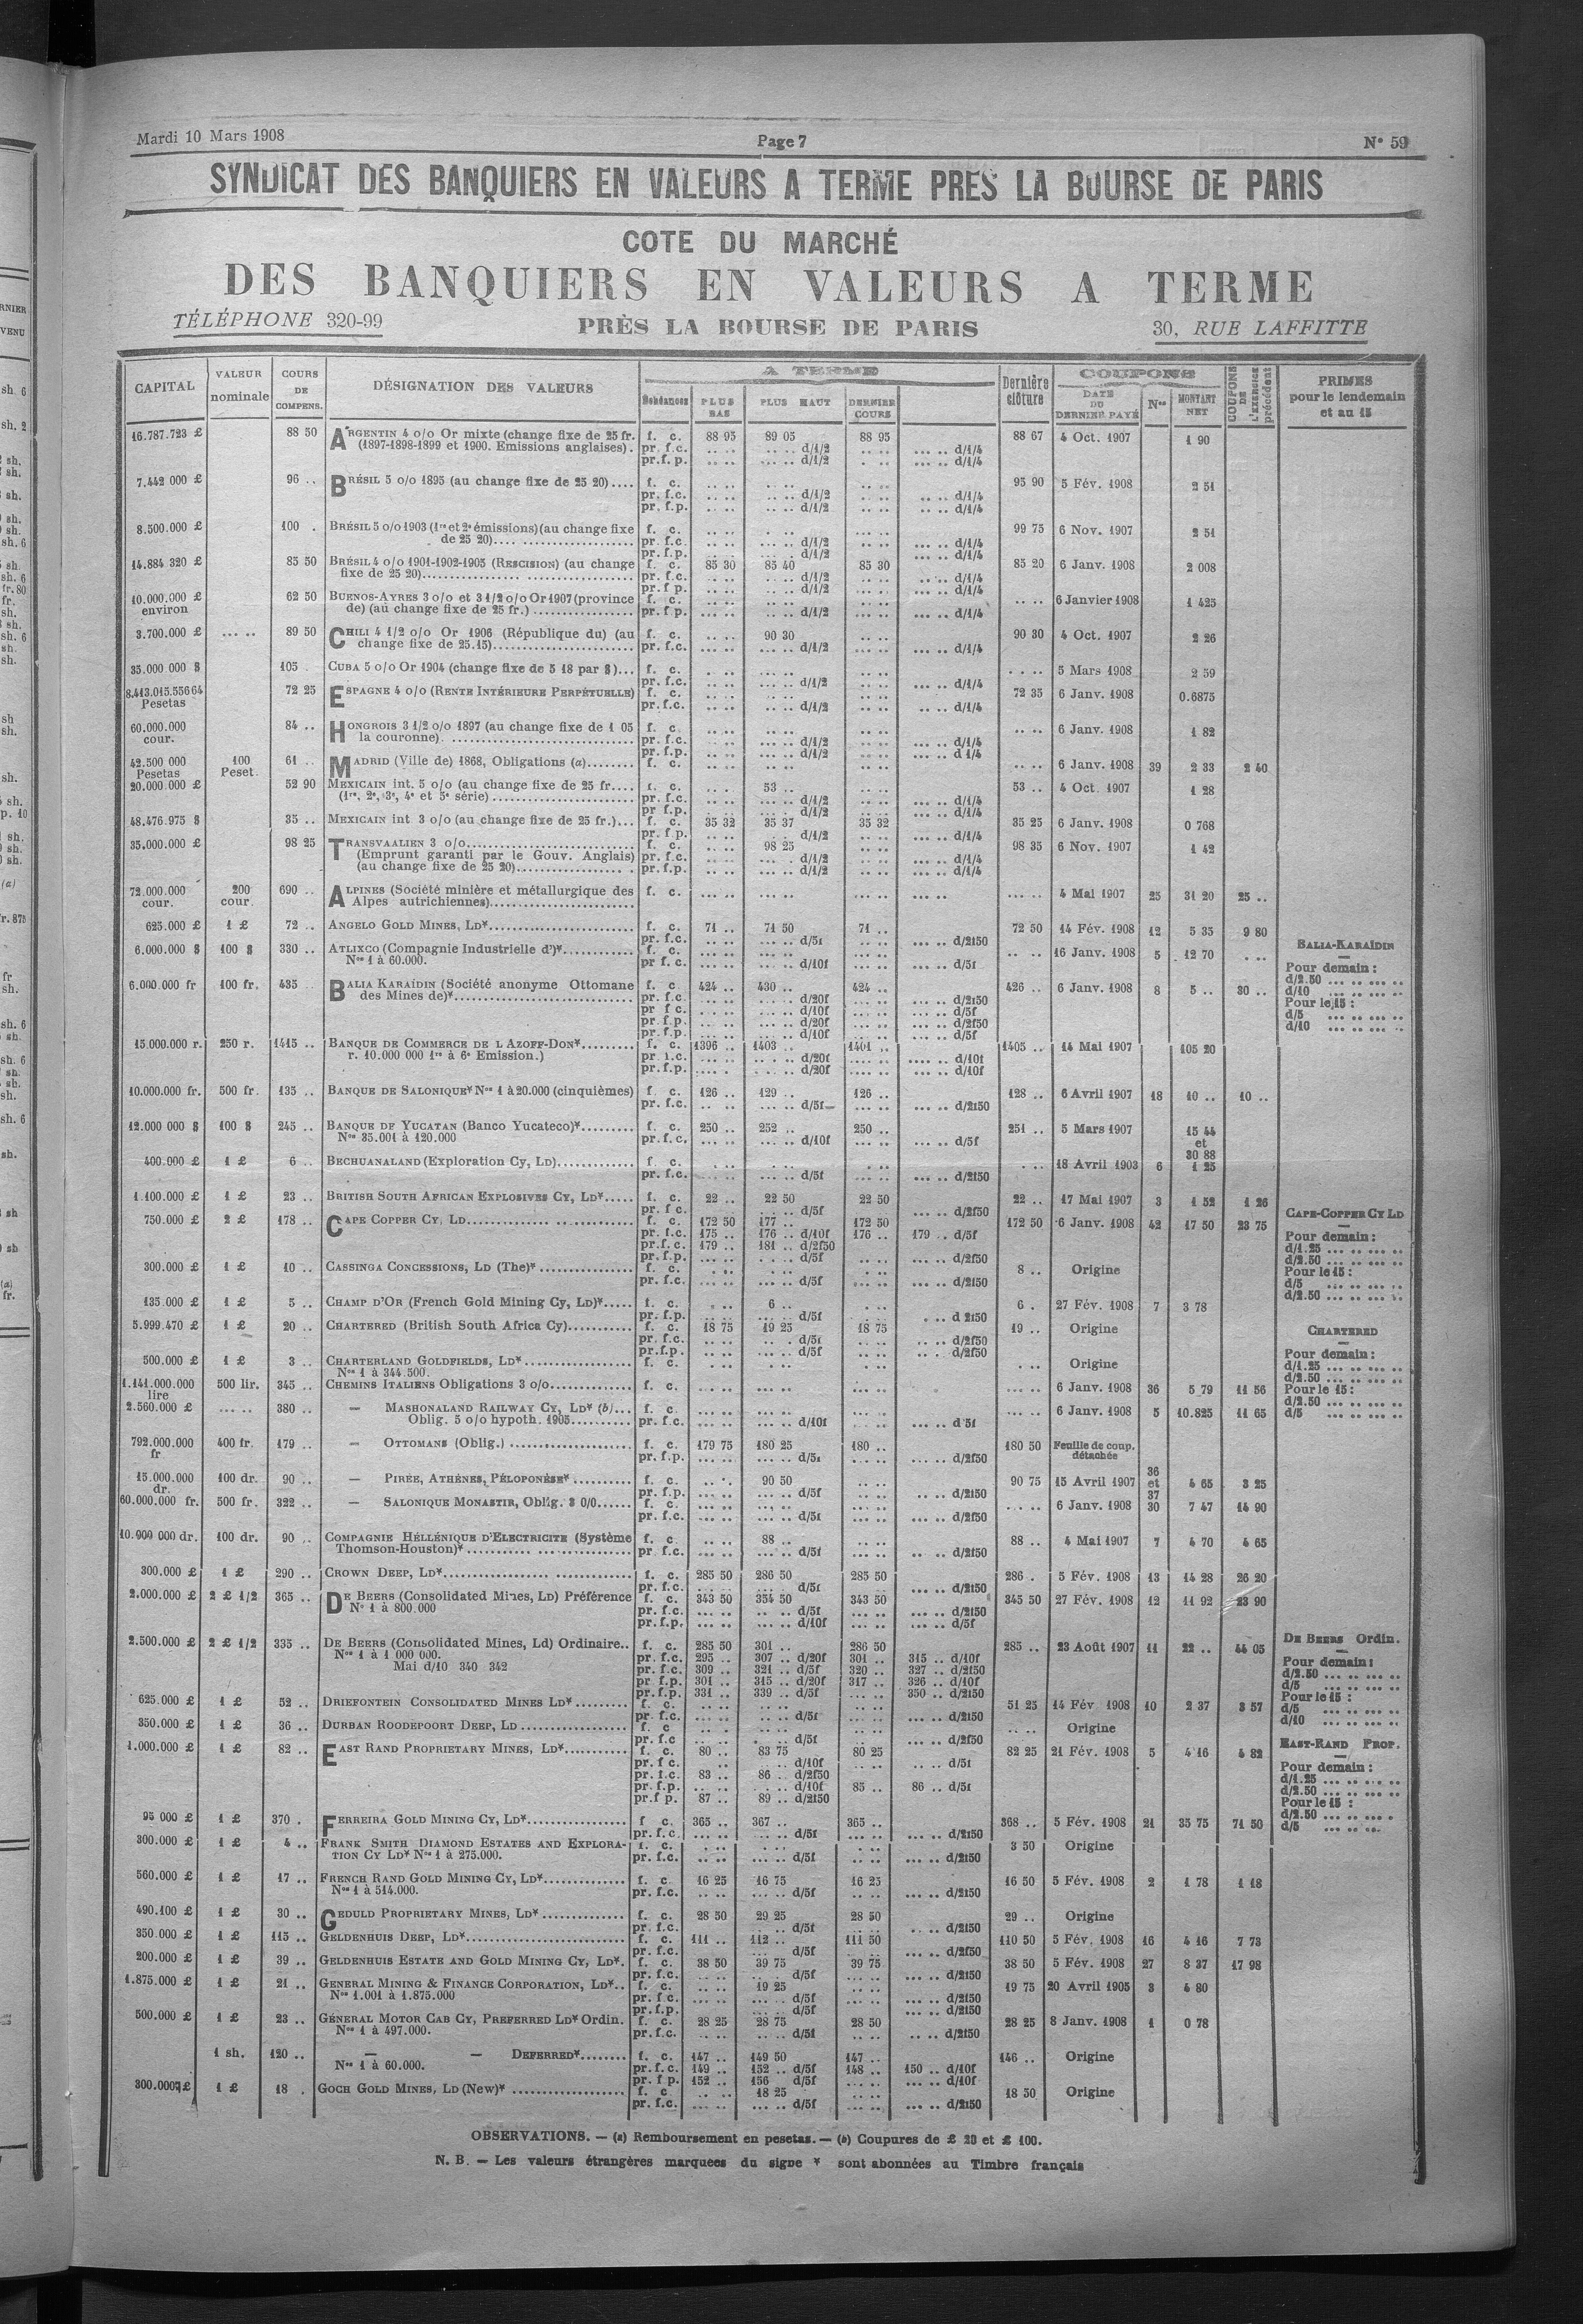 Mardi 10 Mars 1908 Page 7 N° 59
SYNDICAT DES BANQUIERS EN VALEURS A TERME PRÈS LA BOURSE DE PARIS
COTE DU MARCHÉ
DES BANQUIERS EN VALEURS A TERME
TÉLÉPHONE 320-99 PRÈS LA BOURSE DE PARIS 30, RUE LAFFITTE
CAPITAL VALEUR nominale COURS DE COMPENS. DÉSIGNATION DES VALEURS A TERME Echéances PLUS BAS PLUS HAUT DERNIER COURS Dernière clôture COUPONS DATE DU DERNIER PAYÉ Nos MONTANT NET COUPONS DE L'EXERCICE précédent PRIMES pour le lendemain et au 15
16.787.723 £ 88 50 ARGENTIN 4 o/o Or mixte (change fixe de 25 fr. f. c. 88 95 89 05 88 95 88 67 4 Oct. 1907 1 90
(1897-1898-1899 et 1900. Emissions anglaises). pr. f.c. .. .. .. .. d/1/2 .. .. ... .. d/1/4
pr.f. p. .. .. ... .. d/1/2 ... .. d/1/4
7.442 000 £ 96 .. BRÉSIL 5 o/o 1895 (au change fixe de 25 20).... f. c. 95 90 5 Fév. 1908 2 51
pr. f.c. d/1/2 d/1/4
pr. f.p. d/1/2 d/1/4
8.500.000 £ 100 . BRÉSIL 5 o/o 1903 (1re et 2e émissions) (au change fixe f. c. 99 75 6 Nov. 1907 2 51
de 25 20).... pr. f.c. d/1/2 d/1/4
pr. f.p. d/1/2 d/1/4
14.884 320 £ 85 50 BRÉSIL 4 o/o 1901-1902-1905 (RESCISION) (au change f. c. 85 30 85 40 85 30 85 20 6 Janv. 1908 2 008
fixe de 25 20)... pr. f.c. d/1/2 d/1/4
pr. f p. d/1/2
10.000.000 £ 62 50 BUENOS-AYRES 3 o/o et 3 1/2 o/o Or 1907 (province f. c. .. .. 6 Janvier 1908 1 425
environ de) (au change fixe de 25 fr.) ... pr. f p. d/1/2 d/1/4
3.700.000 £ ... .. 89 50 CHILI 4 1/2 o/o Or 1906 (République du) (au f. c. 90 30 90 30 4 Oct. 1907 2 26
change fixe de 25.15)... pr. f.c. d/1/2 d/1/4
35.000 000 $ 105 . CUBA 5 o/o Or 1904 (change fixe de 5 18 par $)... f. c. 5 Mars 1908 2 59
pr. f.c. d/1/2 d/1/4
8.413.015.556 64 72 25 ESPAGNE 4 o/o (RENTE INTÉRIEURE PERPÉTUELLE) f. c. 72 35 6 Janv. 1908 0.6875
Pesetas pr. f.c. d/1/2 d/1/4
60.000.000 84 .. HONGROIS 3 1/2 o/o 1897 (au change fixe de 1 05 f. c. 6 Janv. 1908 1 82
cour. la couronne). ... pr. f.c. d/1/2 d/1/4
pr. f.p. d/1/2 d 1/4
42.500 000 100 61 .. MADRID (Ville de) 1868, Obligations (a)........ f. c. 6 Janv. 1908 39 2 33 2 40
Pesetas Peset.
20.000.000 £ 52 90 MEXICAIN int. 5 o/o (au change fixe de 25 fr.... f. c. 53 .. 53 .. 4 Oct. 1907 1 28
(1re, 2e, 3e, 4e et 5e série) ... pr. f.c. d/1/2 d/1/4
pr f.p. d/1/2 d/1/4
48.476.975 $ 35 .. MEXICAIN int 3 o/o (au change fixe de 25 fr.)... f. c. 35 32 35 37 35 32 35 25 6 Janv. 1908 0 768
pr. f p. d/1/2 d/1/4
35.000.000 £ 98 25 TRANSVAALIEN 3 o/o... f. c. 98 25 98 35 6 Nov. 1907 1 42
(Emprunt garanti par le Gouv. Anglais) pr. f.c. d/1/2 d/1/4
(au change fixe de 25 20)... pr. f.p. d/1/2 d/1/4
72.000.000 200 690 .. ALPINES (Société minière et métallurgique des f. c. 4 Mai 1907 25 31 20 25 ..
cour. cour. Alpes autrichiennes)...
625.000 £ 1 £ 72 .. ANGELO GOLD MINES, LD*... f. c. 71 .. 71 50 71 .. 72 50 14 Fév. 1908 12 5 35 9 80
pr. f.c. d/5f d/2f50
6.000.000 $ 100 $ 330 .. ATLIXCO (Compagnie Industrielle d')*... f. c. 16 Janv. 1908 5 12 70
Nos 1 à 60.000. pr f. c. d/10f d/5f
6.000.000 fr 100 fr. 435 BALIA KARAÏDIN (Société anonyme Ottomane f. c. 424 .. 430 .. 424 .. 426 .. 6 Janv. 1908 8 5 .. 30 ..
des Mines de)*... pr. f.c. d/20f d/2f50
pr f c. d/10f d/5f
pr. f.p. d/20f d/2f50
pr. f.p. d/10f d/5f
BALIA-KARAÏDIN
Pour demain :
d/2.50 ... .. ... ..
d/10 ... .. ... ..
Pour le 15 :
d/5 ... .. ... ..
d/10 ... .. ... ..
15.000.000 r. 250 r. 1415 .. BANQUE DE COMMERCE DE L AZOFF-DON*... f. c. 1396 .. 1403 .. 1401 .. 1405 .. 14 Mai 1907 105 20
r. 10.000 000 1re à 6e Emission.) pr. f.c. d/20f d/10f
pr. f.p. d/20f d/10f
10.000.000 fr. 500 fr. 135 .. BANQUE DE SALONIQUE* Nos 1 à 20.000 (cinquièmes) f. c. 126 .. 129 .. 126 .. 128 .. 6 Avril 1907 18 10 .. 10 ..
pr. f.c. d/5f d/2f50
12.000 000 $ 100 $ 245 .. BANQUE DE YUCATAN (Banco Yucateco)*... f. c. 250 .. 252 .. 250 .. 251 .. 5 Mars 1907 15 44
Nos 35.001 à 120.000 pr. f. c. d/10f d/5f et
30 88
400.000 £ 1 £ 6 .. BECHUANALAND (Exploration Cy, LD)... f. c. 18 Avril 1903 6 1 25
pr. f.c. d/5f d/2f50
1.100.000 £ 1 £ 23 .. BRITISH SOUTH AFRICAN EXPLOSIVES CY, LD*..... f. c. 22 .. 22 50 22 50 22 .. 17 Mai 1907 3 1 52 1 26
pr. f c. d/5f d/2f50
750.000 £ 2 £ 178 .. CAPE COPPER CY, LD... f. c. 172 50 177 .. 172 50 172 50 6 Janv. 1908 42 17 50 23 75
pr. f.c. 175 .. 176 .. d/10f 176 .. 179 .. d/5f
pr.f. c. 179 .. 181 .. d/2f50
pr. f.p. d/5f d/2f50
CAPE-COPPER CY LD
Pour demain :
d/1.25 ... .. ... ..
d/2.50 ... .. ... ..
Pour le 15 :
d/5 ... .. ... ..
d/2.50 ... .. ... ..
300.000 £ 1 £ 10 .. CASSINGA CONCESSIONS, LD (The)* ... f. c. 8 .. Origine
pr. f.c. d/5f d/2f50
135.000 £ 1 £ 5 .. CHAMP D'OR (French Gold Mining Cy, LD)*..... f. c. 6 .. 6 . 27 Fév. 1908 7 3 78
pr. f.p. d/5f d 2f50
5.999.470 £ 1 £ 20 .. CHARTERED (British South Africa Cy)... f. c. 18 75 19 25 18 75 19 .. Origine
pr. f.c. d/5f d/2f50
pr.f.p. d/5f d/2f50
500.000 £ 1 £ 3 .. CHARTERLAND GOLDFIELDS, LD*... f. c. Origine
Nos 1 à 344.500.
CHARTERED
Pour demain :
d/1.25 ... .. ... ..
d/2.50 ... .. ... ..
Pour le 15 :
d/2.50 ... .. ... ..
d/5 ... .. ... ..
1.141.000.000 500 lir. 345 .. CHEMINS ITALIENS Obligations 3 o/o... f. c. 6 Janv. 1908 36 5 79 11 56
lire
2.560.000 £ ... .. 380 .. — MASHONALAND RAILWAY CY, LD* (b)... f. c. 6 Janv. 1908 5 10.825 11 65
Oblig. 5 o/o hypoth. 1905... pr. f.c. d/10f d 5f
792.000.000 400 fr. 179 .. — OTTOMANS (Oblig.) ... f. c. 179 75 180 25 180 .. 180 50 Feuille de coup.
fr pr. f.p. d/5f d/2f50 détachée
15.000.000 100 dr. 90 .. — PIRÉE, ATHÈNES, PÉLOPONÈSE* ... f. c. 90 50 90 75 15 Avril 1907 36 et 37 4 65 3 25
dr. pr. f.p. d/5f d/2f50
60.000.000 fr. 500 fr. 322 .. — SALONIQUE MONASTIR, Oblig. 3 0/0...... f. c. 6 Janv. 1908 30 7 47 14 90
pr. f.c. d/5f d/2f50
10.900 000 dr. 100 dr. 90 .. COMPAGNIE HÉLLÉNIQUE D'ELECTRICITE (Système f. c. 88 .. 88 .. 4 Mai 1907 7 4 70 4 65
Thomson-Houston)* ... pr f.c. d/5f d/2f50
300.000 £ 1 £ 290 .. CROWN DEEP, LD*... f. c. 285 50 286 50 285 50 286 . 5 Fév. 1908 13 14 28 26 20
pr. f.c. d/5f d/2f50
2.000.000 £ 2 £ 1/2 365 .. DE BEERS (Consolidated Mines, LD) Préférence f. c. 343 50 354 50 343 50 345 50 27 Fév. 1908 12 11 92 23 90
N° 1 à 800.000 pr. f.c. d/5f d/2f50
pr. f.p. d/10f d/5f
2.500.000 £ 2 £ 1/2 335 .. DE BEERS (Consolidated Mines, Ld) Ordinaire.. f. c. 285 50 301 .. 286 50 285 .. 23 Août 1907 11 22 .. 44 05
Nos 1 à 1 000 000. pr. f.c. 295 .. 307 .. d/20f 301 .. 315 .. d/10f
Mai d/10 340 342 pr. f.c. 309 .. 321 .. d/5f 320 .. 327 .. d/2f50
pr f.p. 301 .. 315 .. d/20f 317 .. 326 .. d/10f
pr.f.p. 331 .. 339 .. d/5f 350 .. d/2f50
DE BEERS Ordin.
Pour demain :
d/2.50 ... .. ... ..
d/5 ... .. ... ..
Pour le 15 :
d/5 ... .. ... ..
d/10 ... .. ... ..
625.000 £ 1 £ 52 .. DRIEFONTEIN CONSOLIDATED MINES LD* ... f. c. 51 25 14 Fév 1908 10 2 37 3 57
pr. f.c. d/5f d/2f50
350.000 £ 1 £ 36 .. DURBAN ROODEPOORT DEEP, LD ... f. c Origine
pr. f.c d/5f d/2f50
1.000.000 £ 1 £ 82 .. EAST RAND PROPRIETARY MINES, LD*... f. c. 80 .. 83 75 80 25 82 25 21 Fév. 1908 5 4 16 4 82
pr. f c. d/10f d/5f
pr. f.c. 83 .. 86 .. d/2f50
pr. f.p. d/10f 85 .. 86 .. d/5f
pr.f p. 87 .. 89 .. d/2f50
EAST-RAND PROP.
Pour demain :
d/1.25 ... .. ... ..
d/2.50 ... .. ... ..
Pour le 15 :
d/2.50 ... .. ... .
d/5 ... .. ... ..
95 000 £ 1 £ 370 . FERREIRA GOLD MINING CY, LD*... f c. 365 .. 367 .. 365 .. 368 .. 5 Fév. 1908 21 35 75 71 50
pr. f.c. d/5f d/2f50
300.000 £ 1 £ 4 .. FRANK SMITH DIAMOND ESTATES AND EXPLORA- f. c. 3 50 Origine
TION CY LD* Nos 1 à 275.000. pr. f.c. d/5f d/2f50
560.000 £ 1 £ 17 .. FRENCH RAND GOLD MINING CY, LD*... f. c. 16 25 16 75 16 25 16 50 5 Fév. 1908 2 1 78 1 18
Nos 1 à 514.000. pr. f.c. d/5f d/2f50
490.100 £ 1 £ 30 .. GEDULD PROPRIETARY MINES, LD* ... f. c. 28 50 29 25 28 50 29 .. Origine
pr. f.c. d/5f d/2f50
350.000 £ 1 £ 115 .. GELDENHUIS DEEP, LD*... f. c. 111 .. 112 .. 111 50 110 50 5 Fév. 1908 16 4 16 7 73
pr. f.c. d/5f d/2f50
200.000 £ 1 £ 39 .. GELDENHUIS ESTATE AND GOLD MINING CY, LD*. f. c. 38 50 39 75 39 75 38 50 5 Fév. 1908 27 8 37 17 98
pr. f.c. d/5f d/2f50
1.875.000 £ 1 £ 21 .. GENERAL MINING & FINANCE CORPORATION, LD*.. f. c. 19 25 19 75 20 Avril 1905 3 4 80
Nos 1.001 à 1.875.000 pr. f.c. d/5f d/2f50
pr. f.p. d/5f d/2f50
500.000 £ 1 £ 23 .. GÉNÉRAL MOTOR CAB CY, PREFERRED LD* Ordin. f. c. 28 25 28 75 28 50 28 25 8 Janv. 1908 1 0 78
Nos 1 à 497.000. pr. f.c. d/5f d/2f50
1 sh. 120 .. — — DEFERRED*........ f. c. 147 .. 149 50 147 .. 146 .. Origine
Nos 1 à 60.000. pr. f.c. 149 .. 152 .. d/5f 148 .. 150 .. d/10f
pr. f p. 152 .. 156 d/5f d/10f
300.000 £ 1 £ 18 . GOCH GOLD MINES, LD (New)* ... f. c. 18 25 18 50 Origine
pr. f.c. d/5f d/2f50
OBSERVATIONS. — (a) Remboursement en pesetas. — (b) Coupures de £ 20 et £ 100.
N. B. — Les valeurs étrangères marquees du signe * sont abonnées au Timbre français